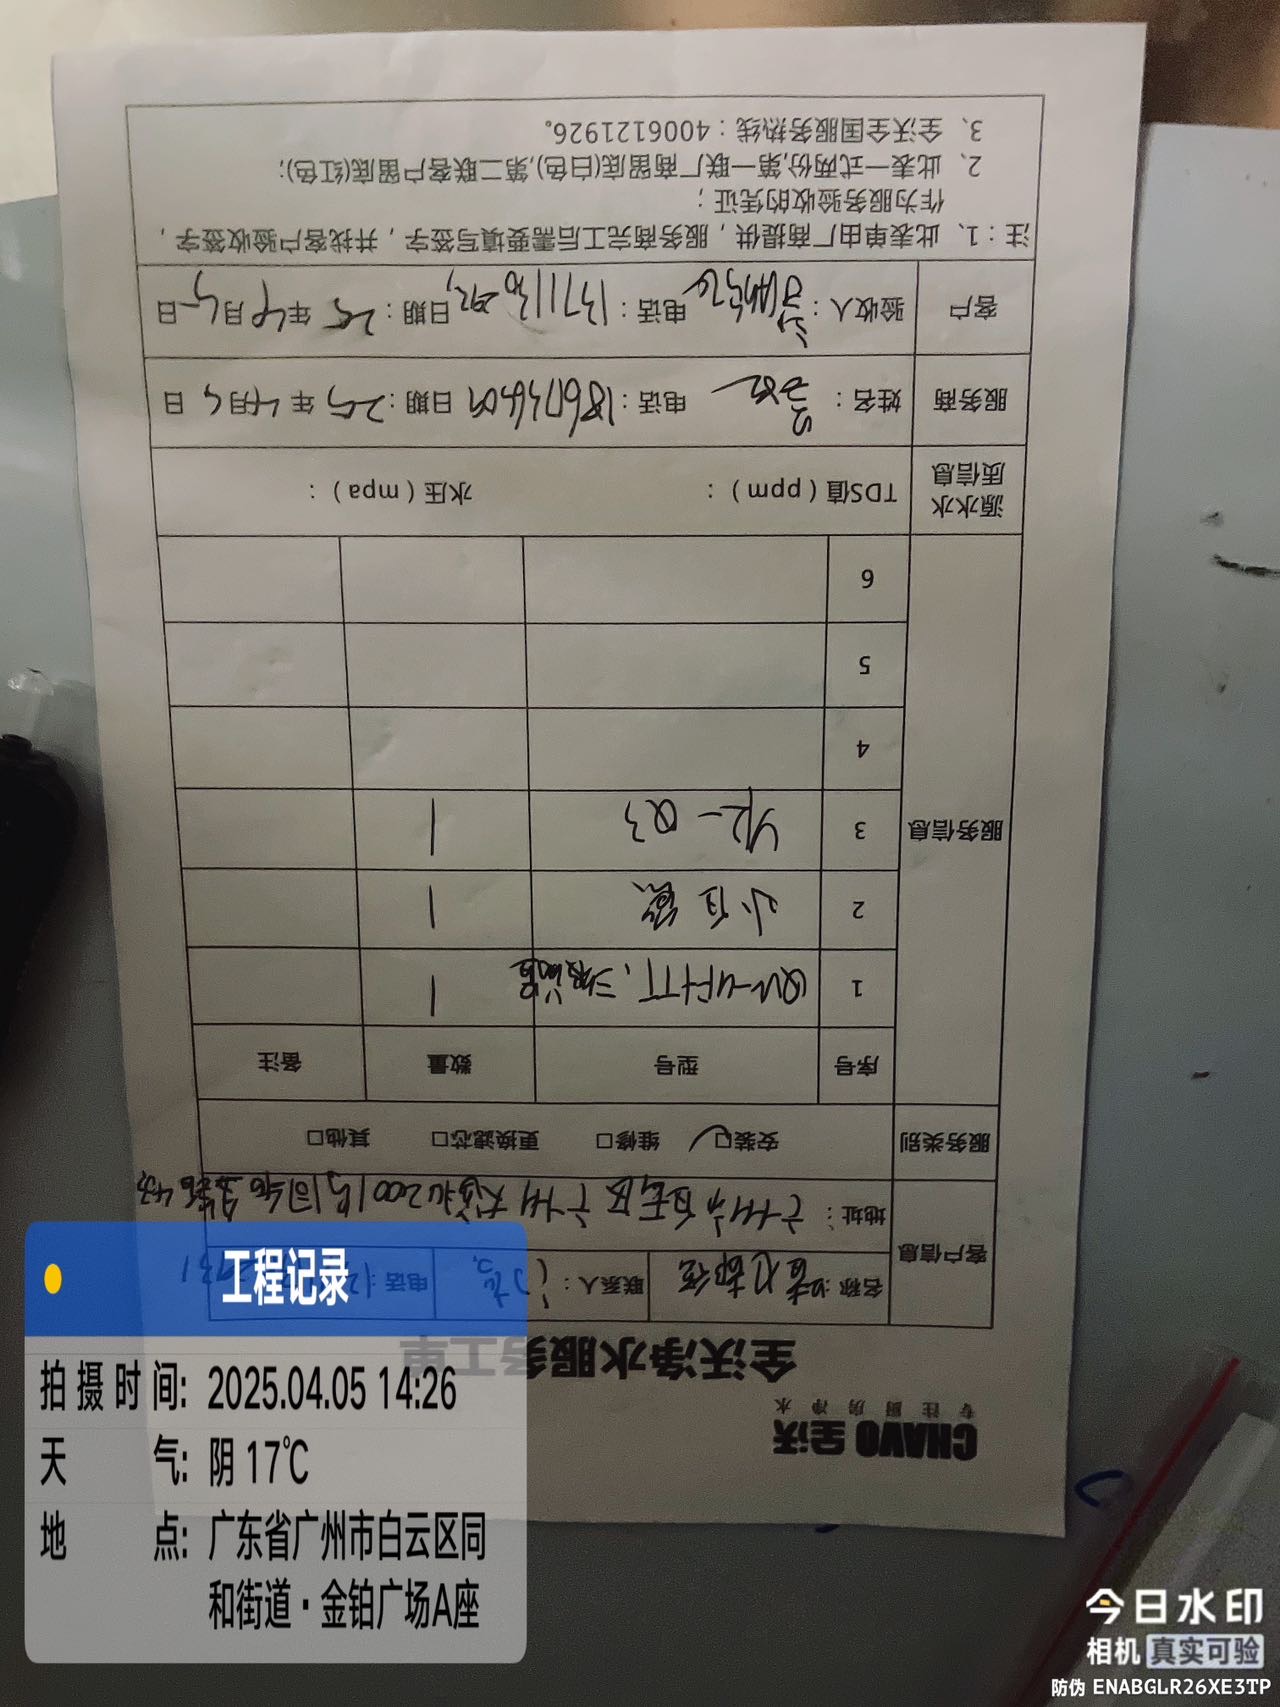 CHAVO 全沃
专注厨房净水
全沃净水服务工单
客户信息
名称: 联系人: 电话:
地址: 广州市白云区广州大道北2001号
服务类别
安装☑ 维修□ 更换滤芯□ 其他□
服务信息
序号 型号 数量 备注
1 1
2 小白 1
3 Y2-Q3 1
4
5
6
源水水质信息
TDS值(ppm): 水压(mpa):
服务商
姓名: 电话: 日期: 25年4月5日
客户
验收人: 电话: 日期: 25年4月5日
注:1、此表单由厂商提供,服务商完工后需要填写签字,并找客户验收签字,
作为服务验收的凭证;
2、此表一式两份,第一联厂商留底(白色),第二联客户留底(红色);
3、全沃全国服务热线:4006121926。
工程记录
拍摄时间: 2025.04.05 14:26
天气: 阴 17℃
地点: 广东省广州市白云区同
和街道·金铂广场A座
今日水印
相机 真实可验
防伪 ENABGLR26XE3TP